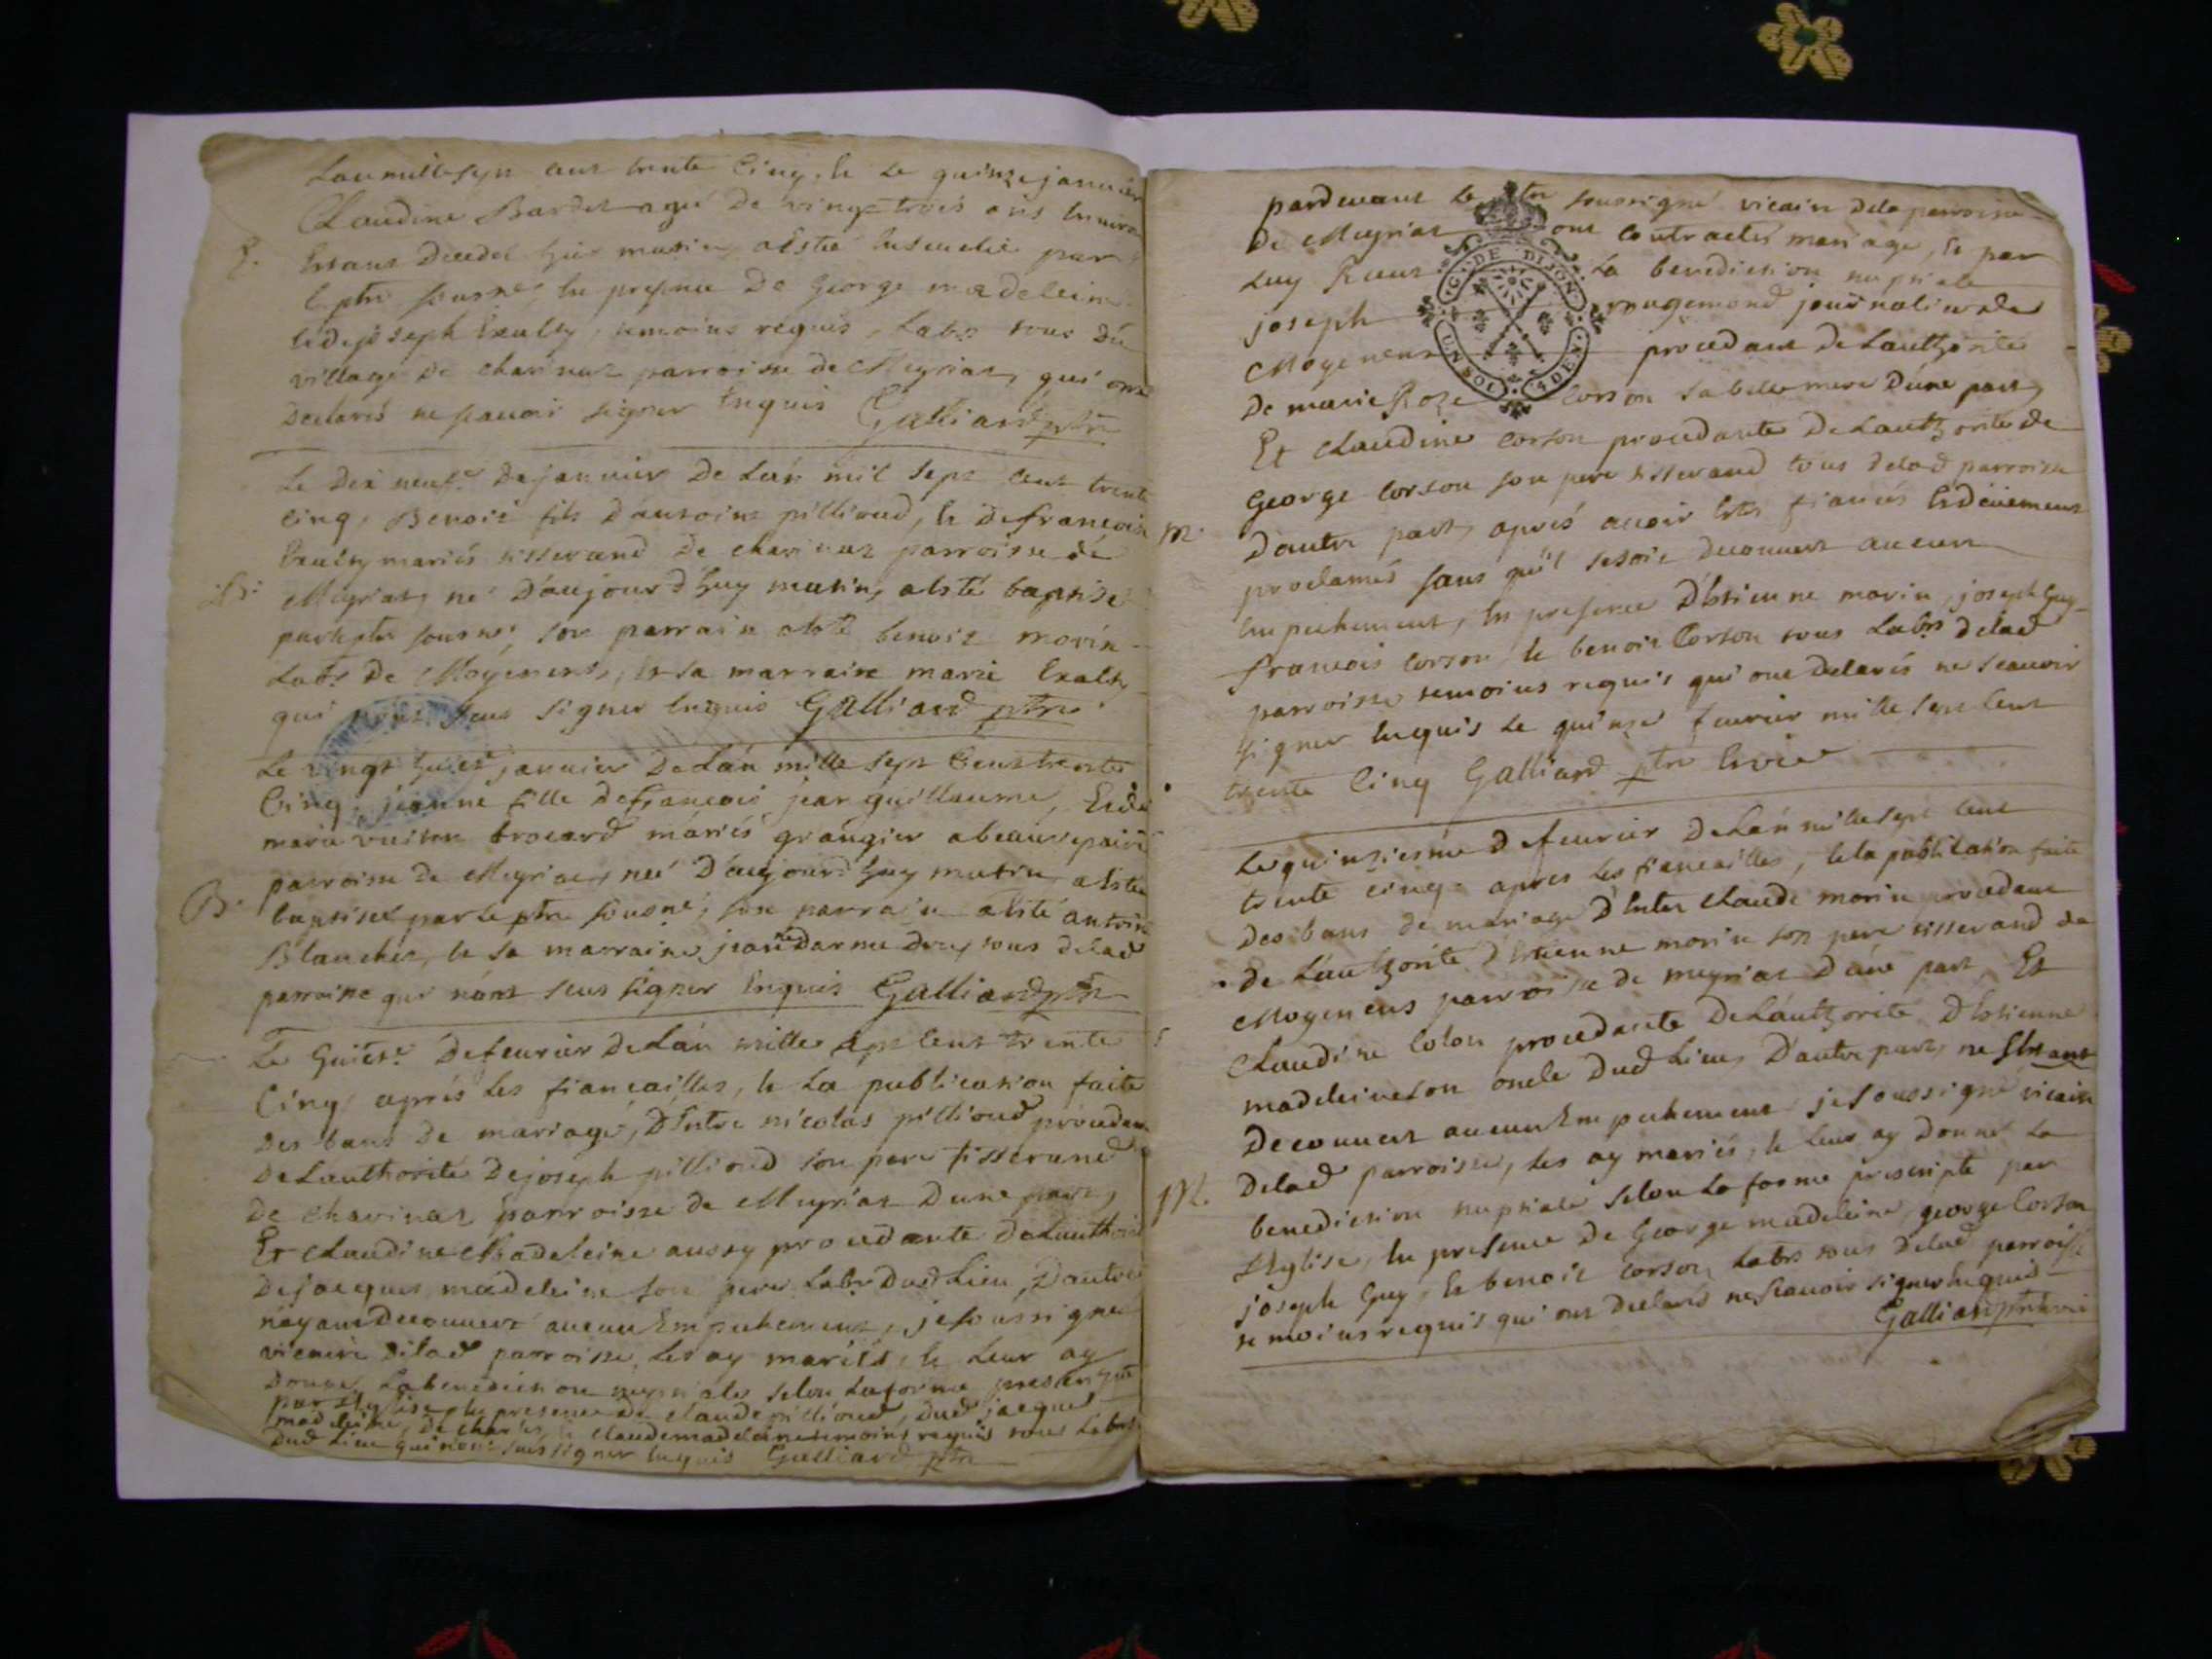 Lan mille sept cens trente Cinq, & le quinze janvier
Claudine Bardet agé de vingt trois ans environ
E. Estans decedé hier matin, a esté ensevelie par
le ptre sousné, en presence de George madeleine
& de joseph Exalty, temoins requis, Labrs tous du
village de charinas parroisse de Meyriat, qui ont
declarés ne scavoir signer enquis Galliard ptre
Le dix neufe de janvier de Lan mil sept cens trente
cinq, Benoit fils d'antoine pillioud, & de francoise
Exalty mariés tisserand de charinas parroisse de
B. Meyriat, né d'aujourd'huy matin, a esté baptisé
par le ptre sousné, son parrain a esté benoit morin
Labr de Mogenens, & sa marraine marie Exalty
qui n'ont sceus signer enquis Galliard ptre
Le vingt huite janvier de Lan mille sept Cens trente
Cinq, jeanne fille de francois jean guillaume, &
marie brocard mariés grangier a beaurepaire
parroisse de Meyriat, neé d'aujourd'huy matin, a estée
B. baptiseé par le ptre sousné, son parrain a esté antoine
Blanchet, & sa marraine jeanne tous delad
parroisse qui n'ont sceus signer Enquis Galliard ptre
Le huite de fevrier de Lan mille sept cens trente
Cinq, aprés les fiancailles, & la publication faite
des bans de mariage, d'Entre nicolas pillioud procedant
de Lauthorité de joseph pillioud son pere tisserand
de chavinas parroisse de Meyriat d'une part,
Et Claudine Madeleine aussy procedante de Lauthorité
de jacques madeleine son pere Labr dud Lieu, d'autre
n'ayant decouvert aucun Empechement, je soussigné
vicaire delad parroisse les ay mariés, & leur ay
donné La benediction nuptiale selon La forme prescripte
par L'Eglise en presence de claude pillioud, dud jacques
madeleine, de charles, & claude madeleine temoins requis tous Labrs
dud Lieu qui n'ont sceus signer enquis Galliard ptre
pardevant Le ptre soussigné vicaire dela parroisse
de Meyriat ont contractés mariage, & par
Luy Receus La benediction nuptiale
joseph rougemond journalier de
Mogenens procedant de Lauthorité
de marie Roze Corson sa belle mere d'une part,
Et Claudine Corson procedante de Lauthorité de
George Corson son pere tisserand tous delad parroisse
M. d'autre part, aprés avoir estés fiancés & deüement
proclamés sans qu'il se soit decouvert aucun
Empechement, en presence d'Estienne morin, joseph Guy
francois Corson, & benoit Corson tous Labrs delad
parroisse temoins requis qui ont declarés ne scavoir
signer enquis Le quinze fevrier mille sept cens
trente Cinq Galliard ptre & vice
Le quinziesme de fevrier de Lan mille sept cens
trente cinq apres les fiancailles, & la publication faite
des bans de mariage d'Entre Claude morin procedant
de L'authorité d'Estienne morin son pere tisserand de
Mogenens parroisse de meyriat d'une part, Et
Claudine Colon procedante de L'authorité d'Estienne
madeleine son oncle dud Lieu, d'autre part, ne s'estant
decouvert aucun Empechement je soussigné vicaire
M. delad parroisse, les ay mariés, & leur ay donné La
benediction nuptiale selon La forme prescripte par
L'Eglise, en presence de George madeleine, george Corson
joseph Guy, & benoit Corson Labrs tous delad parroisse
temoins requis qui ont declarés ne scavoir signer Enquis
Galliard ptre & vic
G. DE DIJON
UN SOL 4 DEN.